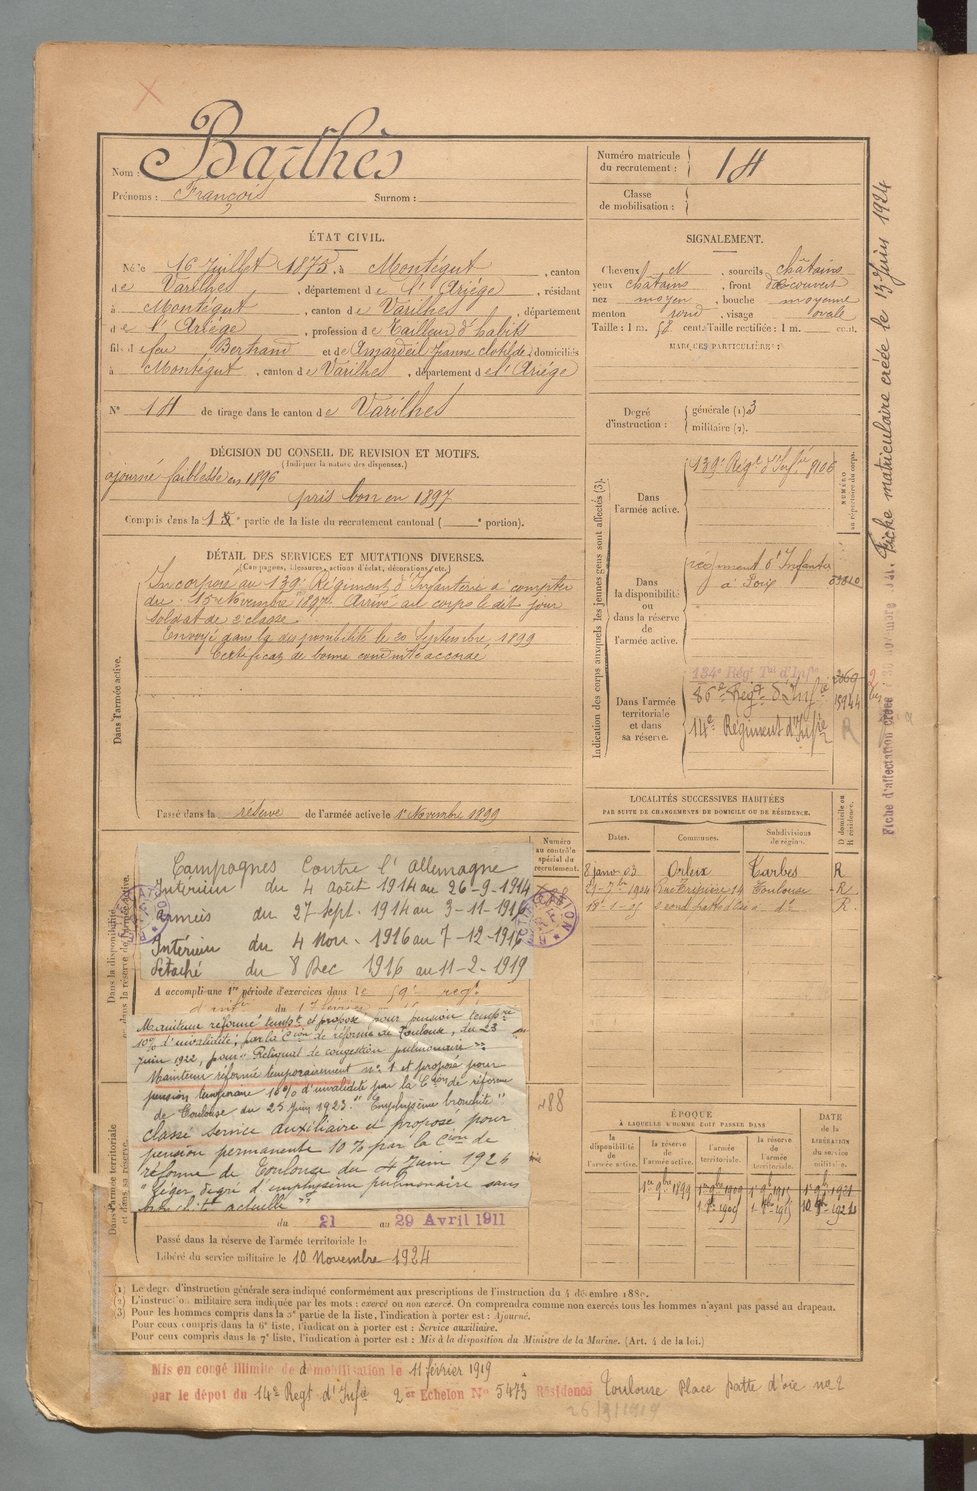 Nom : Barthès
Prénoms : François Surnom :
Numéro matricule du recrutement : 14
Classe de mobilisation :
ÉTAT CIVIL.
Né le 16 Juillet 1875, à Montégut, canton
de Varilhes, département de l'Ariége, résidant
à Montégut, canton de Varilhes, département
de l'Ariége, profession de Tailleur d'habits
fils de feu Bertrand et de Amardeil Jeanne Clotilde, domiciliés
à Montégut, canton de Varilhes, département de l'Ariége
N° 14 de tirage dans le canton de Varilhes
SIGNALEMENT.
Cheveux N, sourcils châtains
yeux châtains, front découvert
nez moyen, bouche moyenne
menton rond, visage ovale
Taille : 1 m. 57 cent. Taille rectifiée : 1 m. cent.
MARQUES PARTICULIÈRES :
Degré d'instruction : générale (1) 3
militaire (2).
DÉCISION DU CONSEIL DE REVISION ET MOTIFS.
(Indiquer la nature des dispenses.)
ajourné faiblesse en 1896
pris bon en 1897
Compris dans la 1e partie de la liste du recrutement cantonal ( e portion).
DÉTAIL DES SERVICES ET MUTATIONS DIVERSES.
(Campagnes, blessures, actions d'éclat, décorations, etc.)
Dans l'armée active.
Incorporé au 139e Régiment d'Infanterie à compter
du 15 Novembre 1897. Arrivé au corps le dit jour
soldat de 2e classe.
Envoyé dans la disponibilité le 20 Septembre 1899
Certificat de bonne conduite accordé
Passé dans la réserve de l'armée active le 1er Novembre 1899
Indication des corps auxquels les jeunes gens sont affectés (3).
NUMÉRO au répertoire du corps.
Dans l'armée active.
139e Régt d'Infie 9106
Dans la disponibilité ou dans la réserve de l'armée active.
régiment d'Infanterie
à Foix
Dans l'armée territoriale et dans sa réserve.
134e Régt Tal d'Infie
14e Régiment d'Infie R
LOCALITÉS SUCCESSIVES HABITÉES
PAR SUITE DE CHANGEMENTS DE DOMICILE OU DE RÉSIDENCE.
Dates. Communes. Subdivisions de région. D domicile ou R résidence.
8 janv 03 Orleix Tarbes R
Toulouse R
dt R.
Dans la disponibilité ou dans la réserve de l'armée active.
Numéro au contrôle spécial du recrutement.
Campagnes Contre l'allemagne
Intérieur du 4 août 1914 au 26-9-1914
armées du 27 sept. 1914 au 3-11-1916
Intérieur du 4 Nov. 1916 au 7-12-1916
Détaché du 8 Dec 1916 au 11-2-1919
A accompli une 1re période d'exercices dans le 59e régt
Maintenu réformé tempt et proposé pour pension tempre
10% d'invalidité, par la Cion de réforme de Toulouse, du 23
Juin 1922, pour "Reliquat de congestion pulmonaire"
Maintenu réformé temporairement n° 1 et proposé pour
pension temporaire 10% d'invalidité par la Cion de réforme
de Toulouse du 25 Juin 1923. "Emphysème bronchite"
classé service auxiliaire et proposé pour
pension permanente 10% par la Cion de
réforme de Toulouse du 4 Juin 1924
"Léger degré d'emphysème pulmonaire sans
bronchite actuelle"
488
Dans l'armée territoriale et dans sa réserve.
du 21 au 29 Avril 1911
Passé dans la réserve de l'armée territoriale le
Libéré du service militaire le 10 Novembre 1924
ÉPOQUE
À LAQUELLE L'HOMME DOIT PASSER DANS
DATE de la LIBÉRATION du service militaire.
la disponibilité de l'armée active. la réserve de l'armée active. l'armée territoriale. la réserve de l'armée territoriale.
1er 9bre 1899 1er 9bre 1909 1er 9bre 1915 1er 9bre 1921
(1) Le degré d'instruction générale sera indiqué conformément aux prescriptions de l'instruction du 4 décembre 1889.
(2) L'instruction militaire sera indiquée par les mots : exercé ou non exercé. On comprendra comme non exercés tous les hommes n'ayant pas passé au drapeau.
(3) Pour les hommes compris dans la 5e partie de la liste, l'indication à porter est : Ajourné.
Pour ceux compris dans la 6e liste, l'indication à porter est : Service auxiliaire.
Pour ceux compris dans la 7e liste, l'indication à porter est : Mis à la disposition du Ministre de la Marine. (Art. 4 de la loi.)
Mis en congé illimité de démobilisation le 11 février 1919
par le dépôt du 14e Regt d'Infie 2er Echelon N° 5473 Résidence Toulouse Place patte d'oie n° 2
26/3/1919
Fiche matriculaire créée le 13 Juin 1924
Fiche d'affectation créée